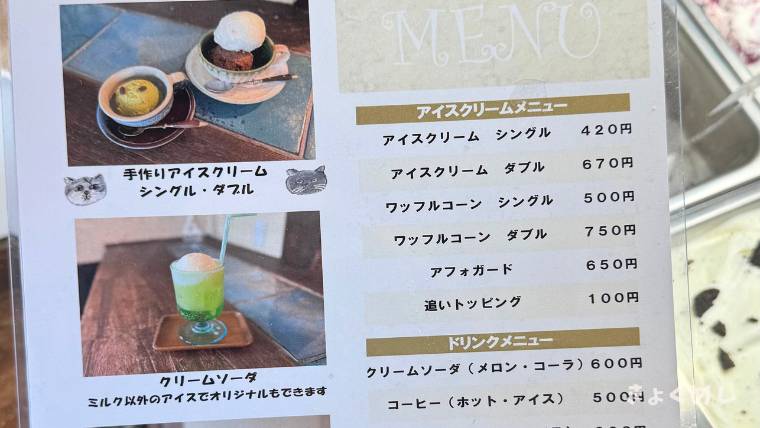 MENU
アイスクリームメニュー
アイスクリーム シングル 420円
アイスクリーム ダブル 670円
ワッフルコーン シングル 500円
ワッフルコーン ダブル 750円
アフォガード 650円
追いトッピング 100円
ドリンクメニュー
クリームソーダ(メロン・コーラ)600円
コーヒー(ホット・アイス) 500円
手作りアイスクリーム
シングル・ダブル
クリームソーダ
ミルク以外のアイスでオリジナルもできます
きょくめし